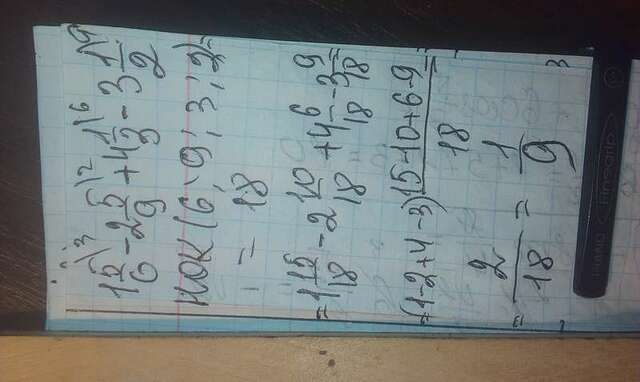 1 5/6 \3 - 2 5/9 \2 + 4 1/3 \6 - 3 1/2 \9
НОК (6; 9; 3; 2)=
= 18
= 1 15/18 - 2 10/18 + 4 6/18 - 3 9/18 =
= (1-2+4-3) 15-10+6-9/18 =
= 2/18 = 1/9